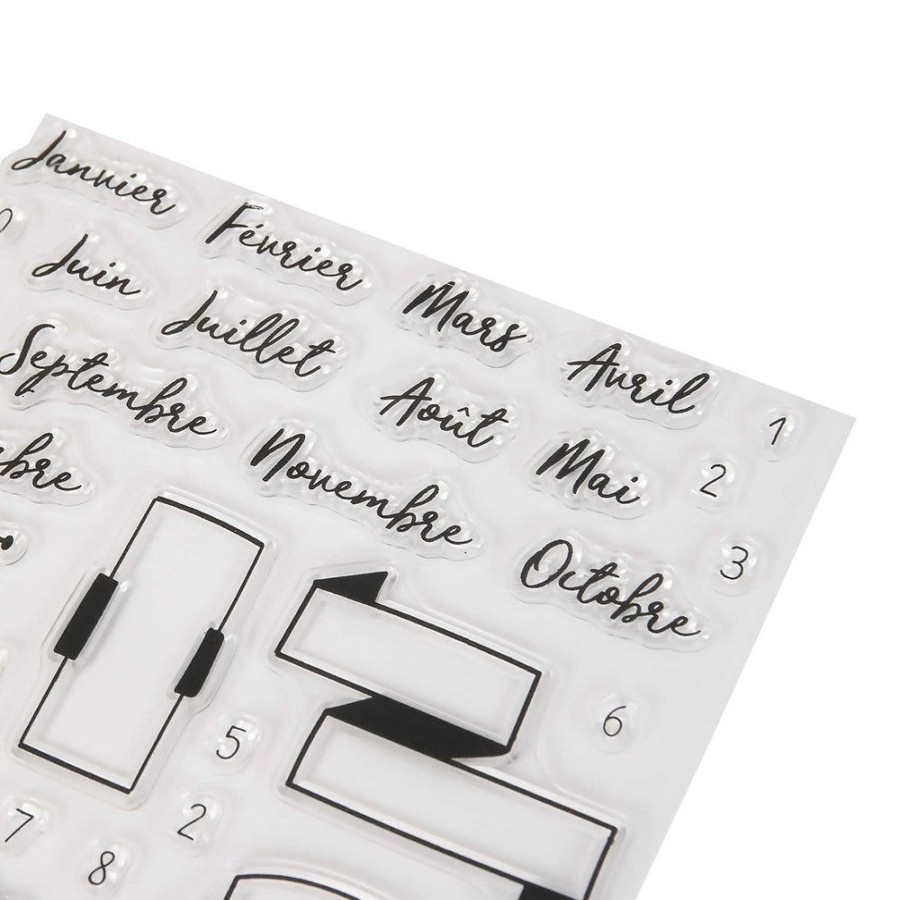 Janvier Février Mars Avril 1
Juin Juillet Août Mai 2
Septembre Novembre Octobre 3
bre
6
5
7 2
8